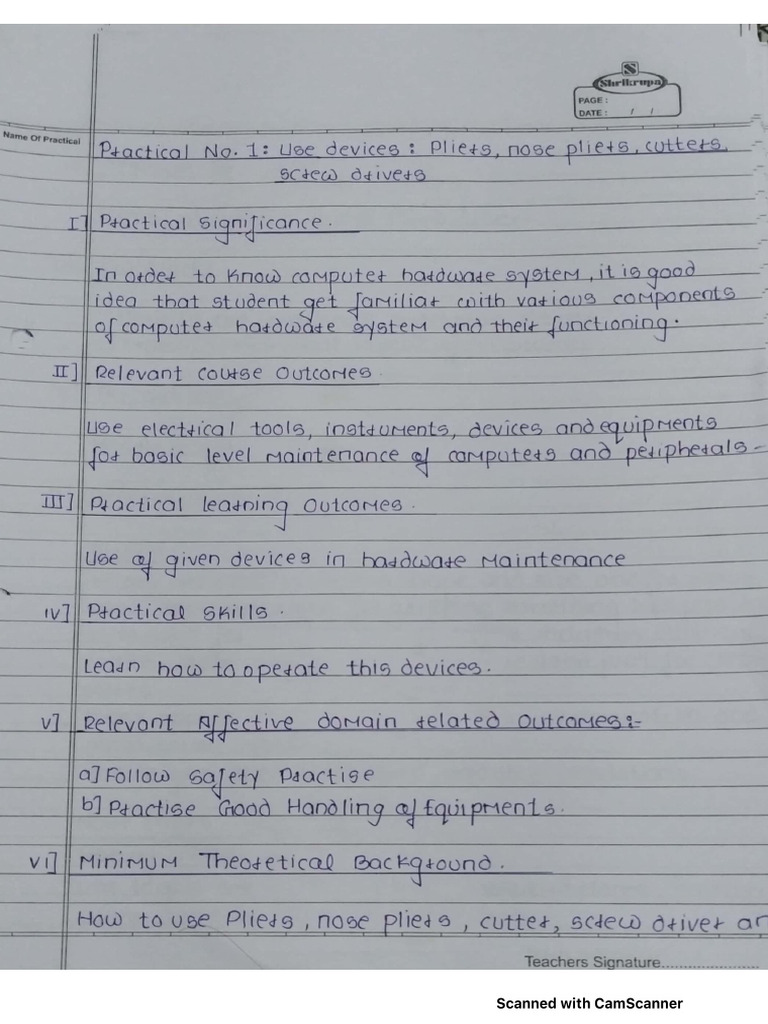 S
Shrikrupa
PAGE :
DATE : / /
Name Of Practical
Practical No. 1: Use devices : Pliers, nose pliers, cutters,
screw drivers
I] Practical Significance.
In order to know computer hardware system, it is good
idea that student get familiar with various components
of computer hardware system and their functioning.
II] Relevant Course Outcomes.
Use electrical tools, instruments, devices and equipments
for basic level maintenance of computers and peripherals-
III] Practical learning Outcomes.
Use of given devices in hardware maintenance
IV] Practical Skills.
Learn how to operate this devices.
V] Relevant Affective domain related Outcomes:-
a] Follow Safety Practise
b] Practise Good Handling of Equipments.
VI] Minimum Theoretical Background.
How to use Pliers, nose pliers, cutter, screw driver
Teachers Signature....................
Scanned with CamScanner